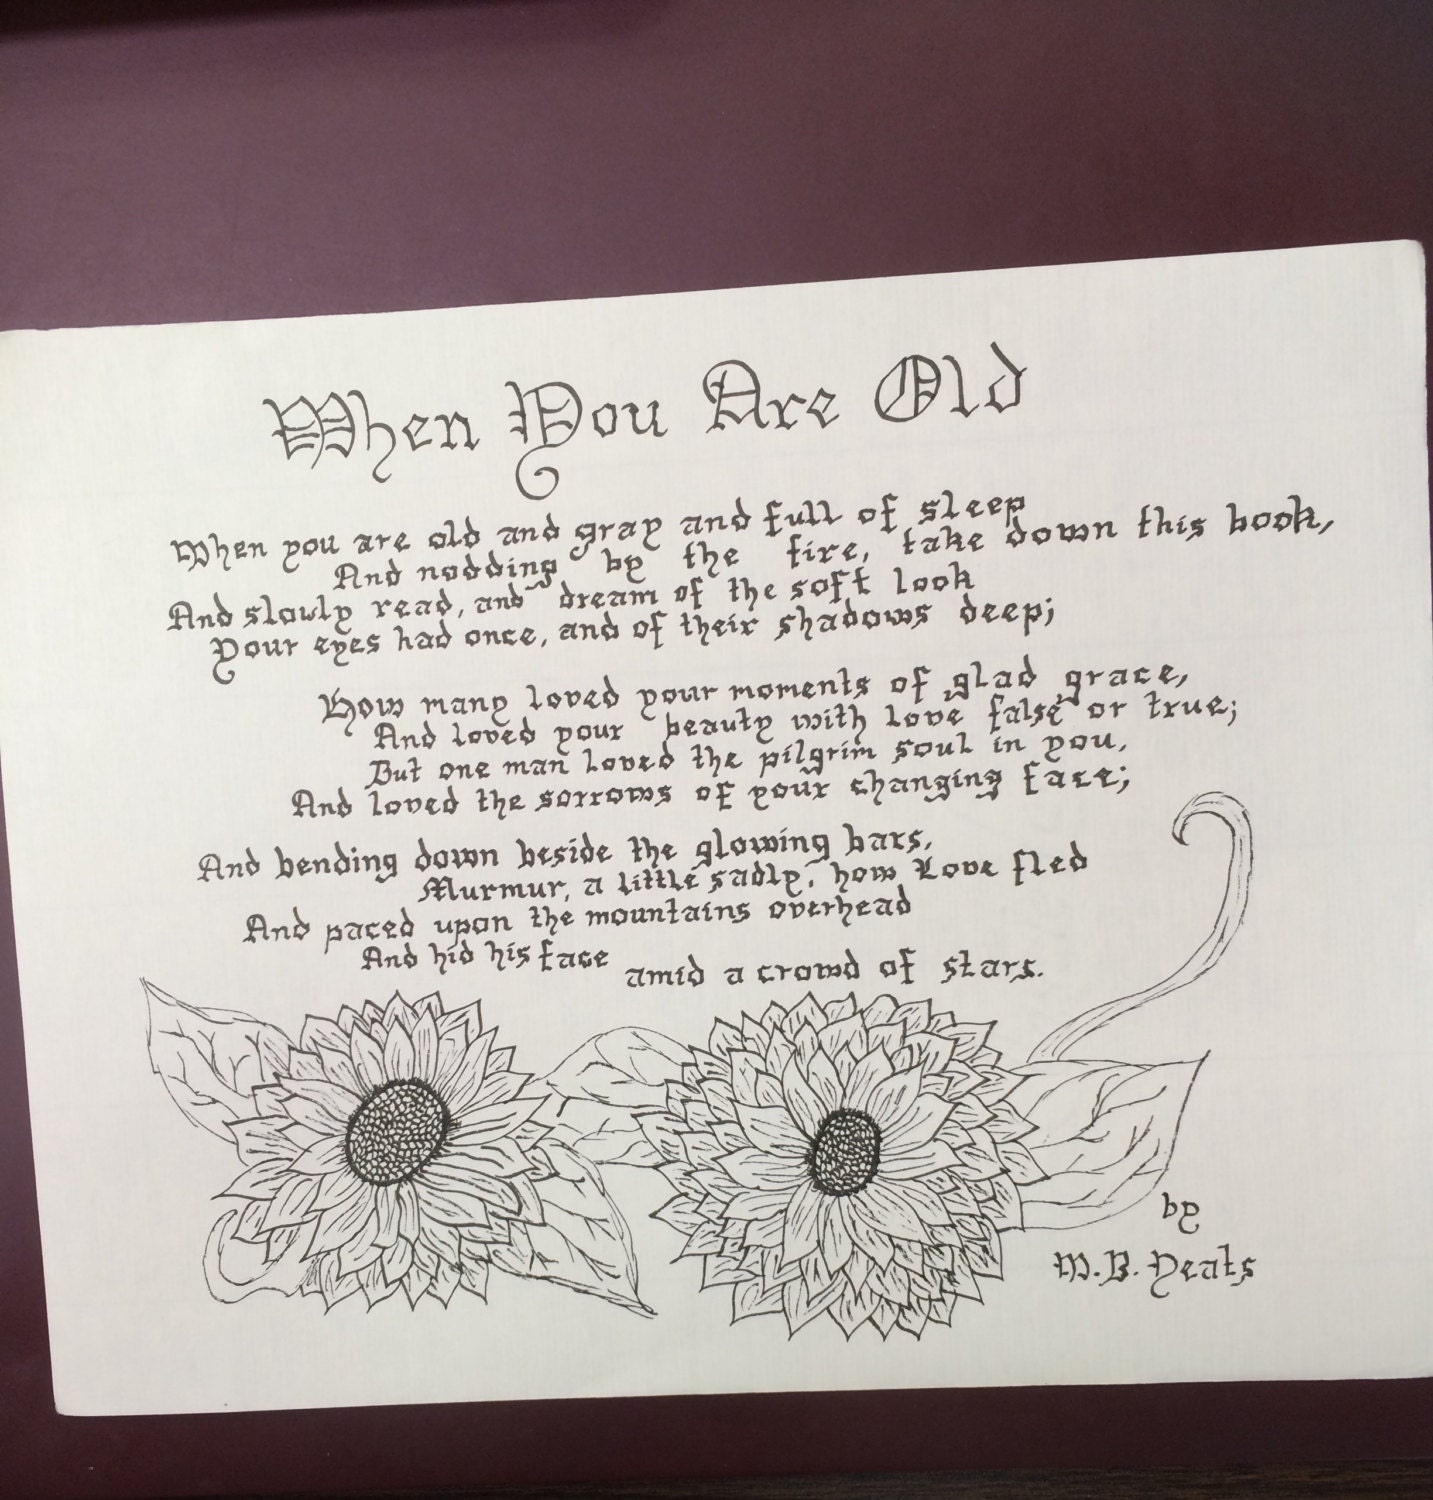 When You Are Old
When you are old and gray and full of sleep
And nodding by the fire, take down this book,
And slowly read, and dream of the soft look
Your eyes had once, and of their shadows deep;
How many loved your moments of glad grace,
And loved your beauty with love false or true;
But one man loved the pilgrim soul in you,
And loved the sorrows of your changing face;
And bending down beside the glowing bars,
Murmur, a little sadly, how Love fled
And paced upon the mountains overhead
And hid his face amid a crowd of stars.
by
W.B. Yeats